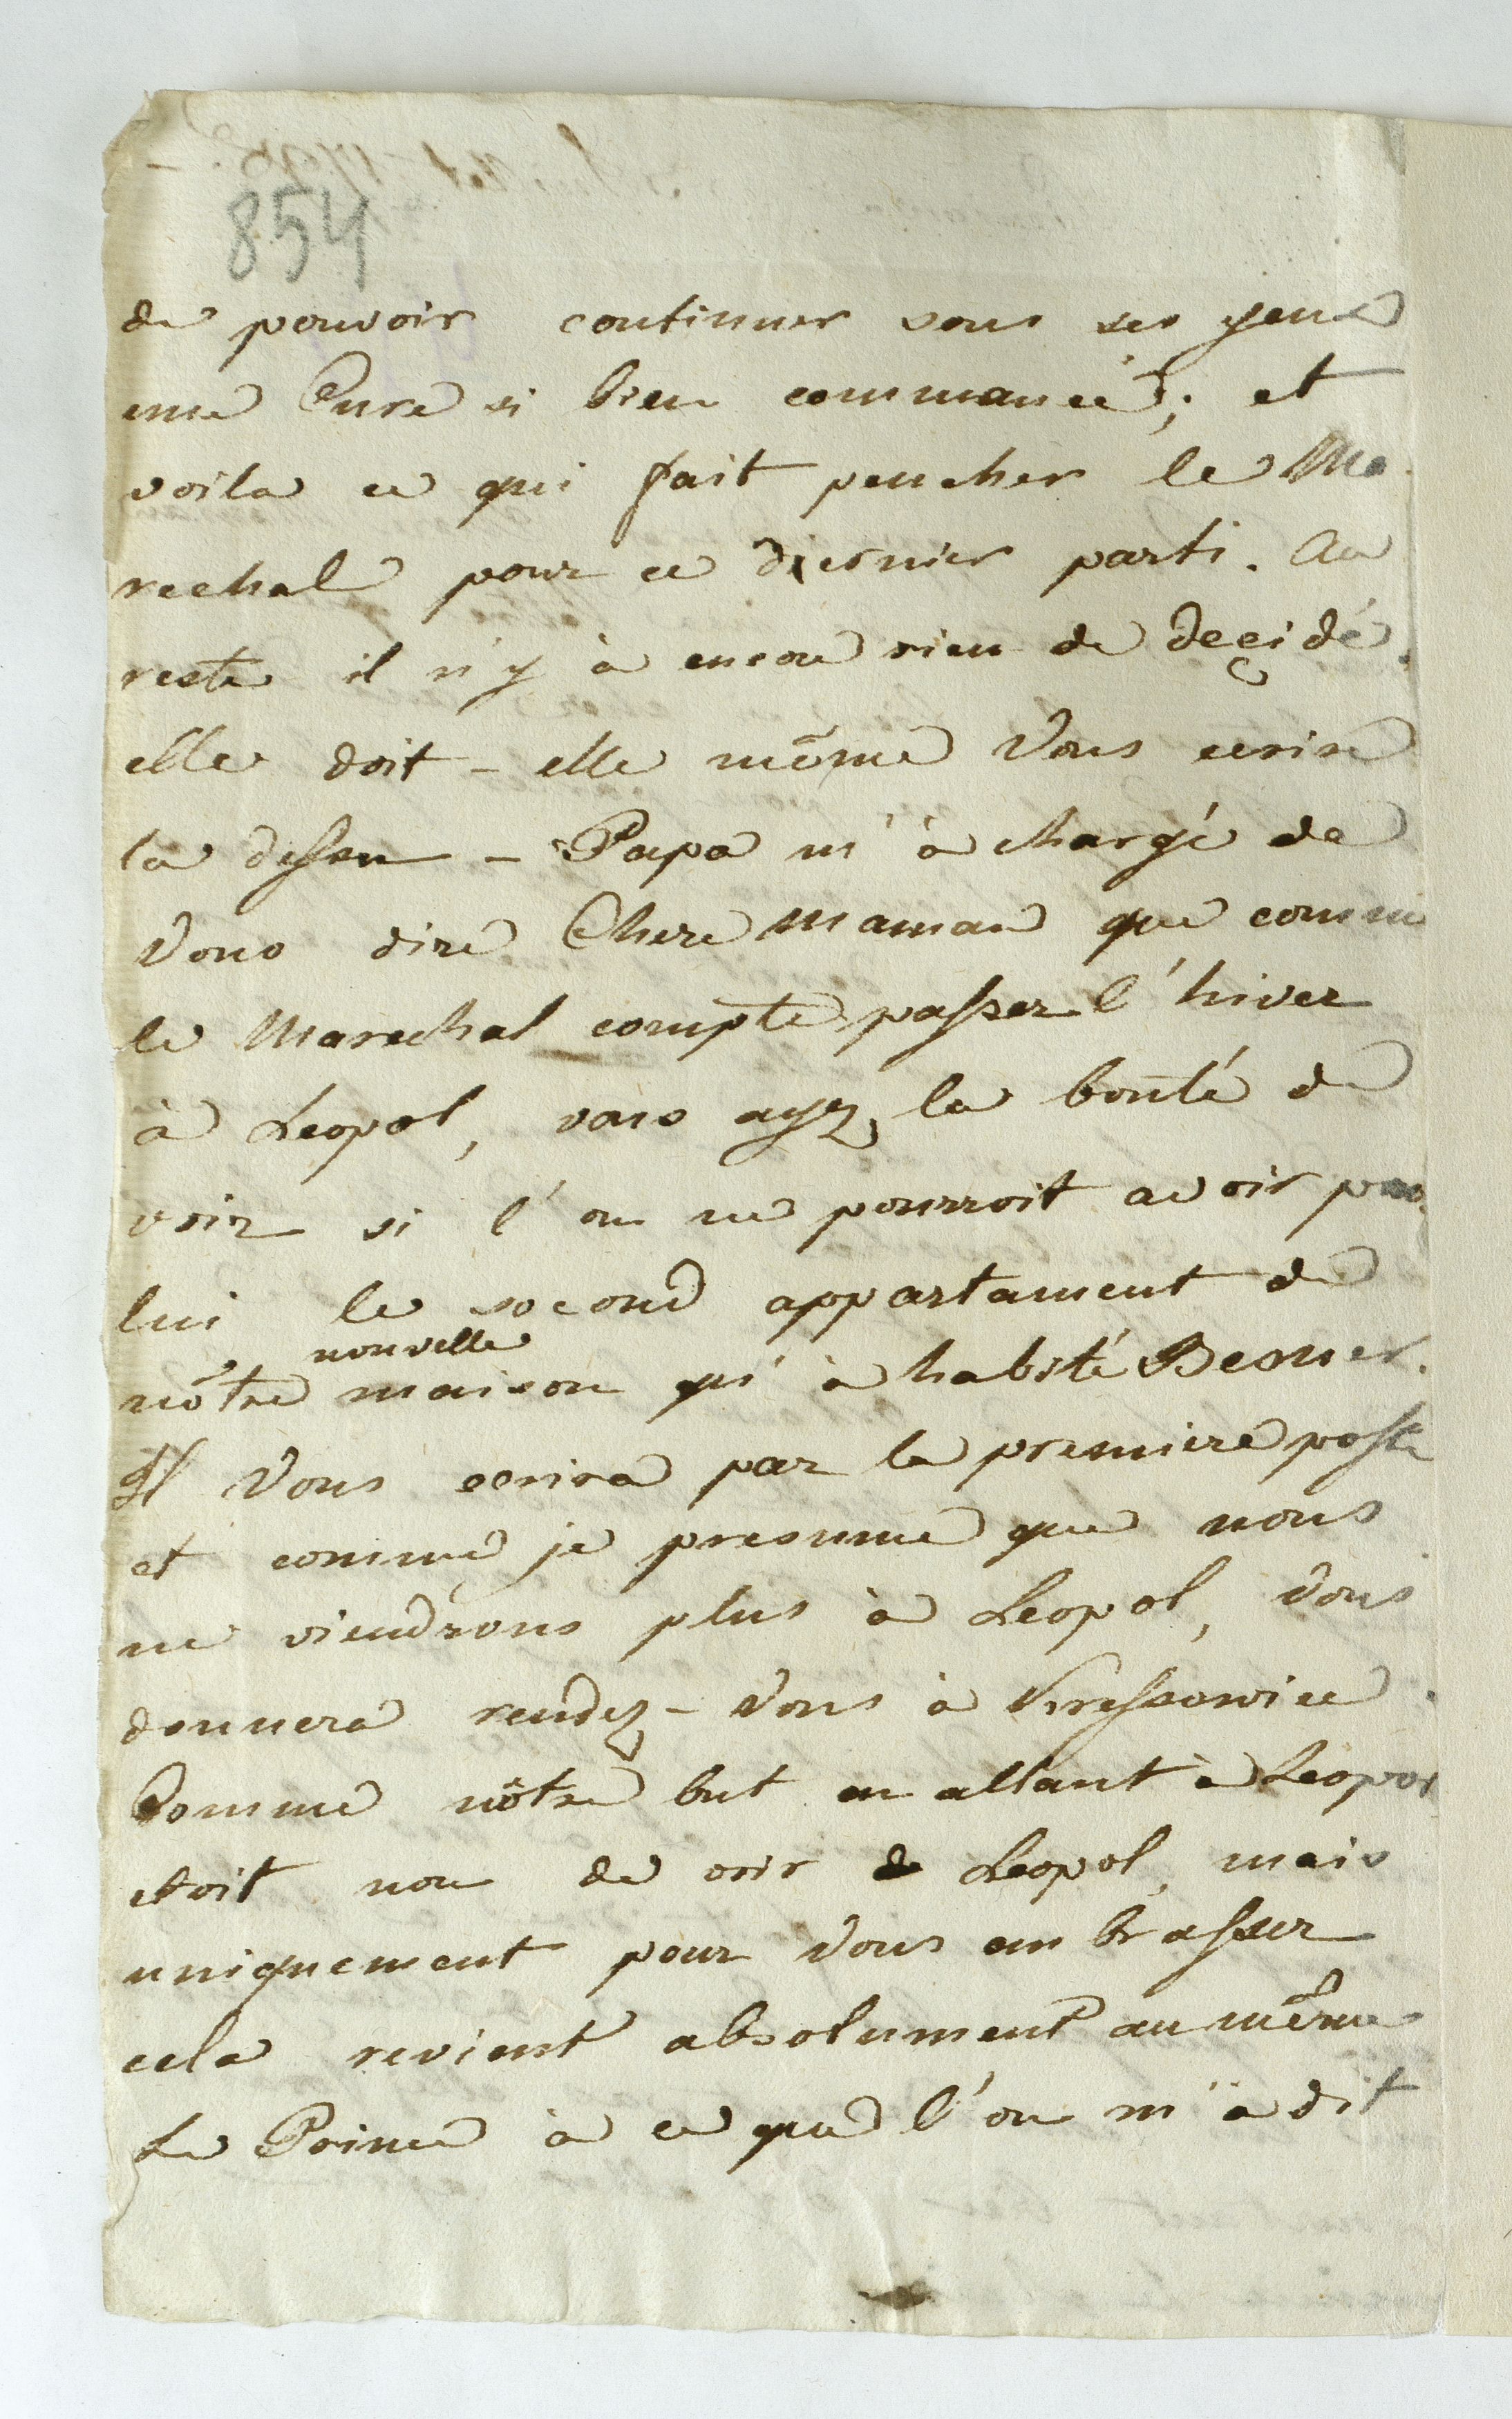 854
de pouvoir continuer sous ses yeux
une Cure si bien commancé; et
voila ce qui fait pencher le Ma
rechal pour ce diernier parti. Au
reste il n'y à encore rien de decidé.
elle doit - elle même Vous ecrire
la dessu - Papa m'à chargé de
Vous dire Chere Maman que comme
le Marechal compte passer l'hiver
à Leopol, vous ayez la bonté de
voir si l'on ne pourroit avoir pour
lui le second appartament de
nouvelle
nôtre maison qu'à habité Besner.
Il Vous ecrira par la premiere poste
et comme je presume que nous
ne viendrons plus à Leopol, Vous
donnera rendez-Vous à Kressowice.
Comme nôtre but en allant à Leopol
etoit non de voir Leopol, mais
uniquement pour Vous embrasser
cela revient absolument au même
Le Prince à ce que l'on m'à dit